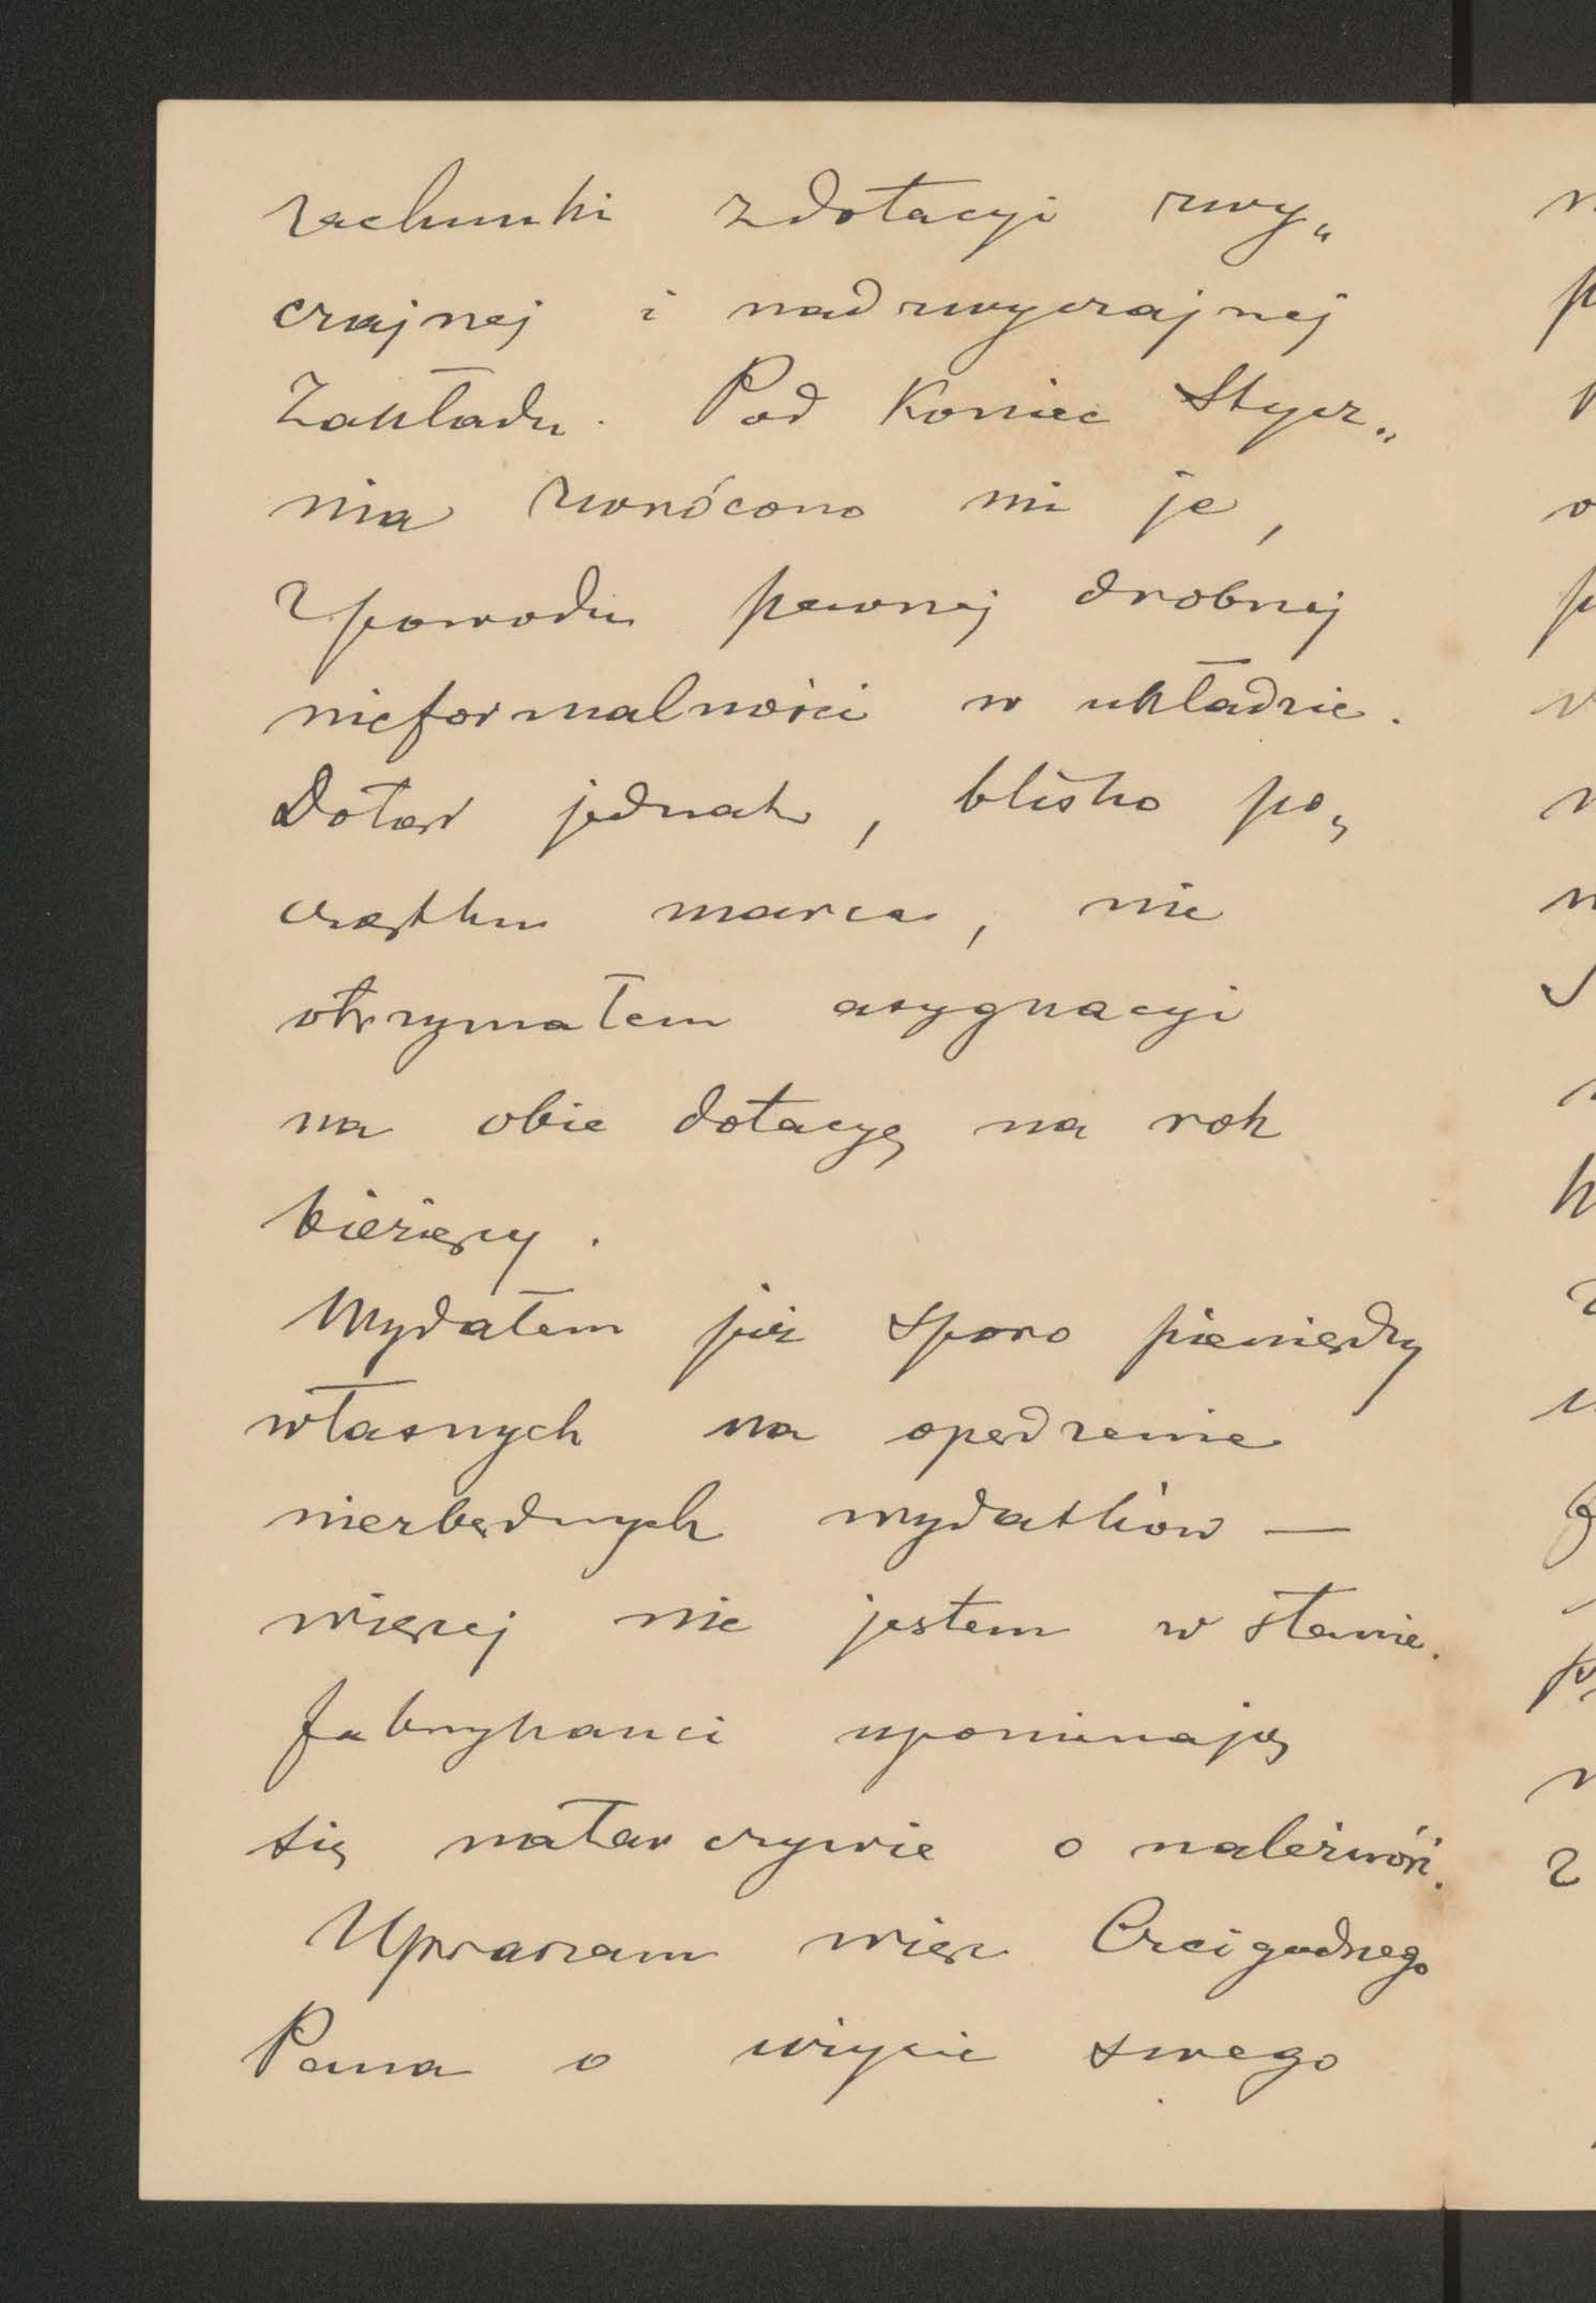 rachunki z dotacyi zwy„
czajnej i nadzwyczajnej
Zakładu. Pod Koniec Stycz„
nia zwrócono mi je,
z powodu pewnej drobnej
nieformalności w układzie.
Dotąd jednak, blisko po„
czątku marca, nie
otrzymałem asygnacyi
na obie dotacye na rok
bieżący.
Wydałem już sporo pieniędzy
własnych na opędzenie
niezbędnych wydatków —
więcej nie jestem w stanie.
Fabrykanci upominają
się natarczywie o należność.
Upraszam więc Czcigodnego
Pana o użycie swego